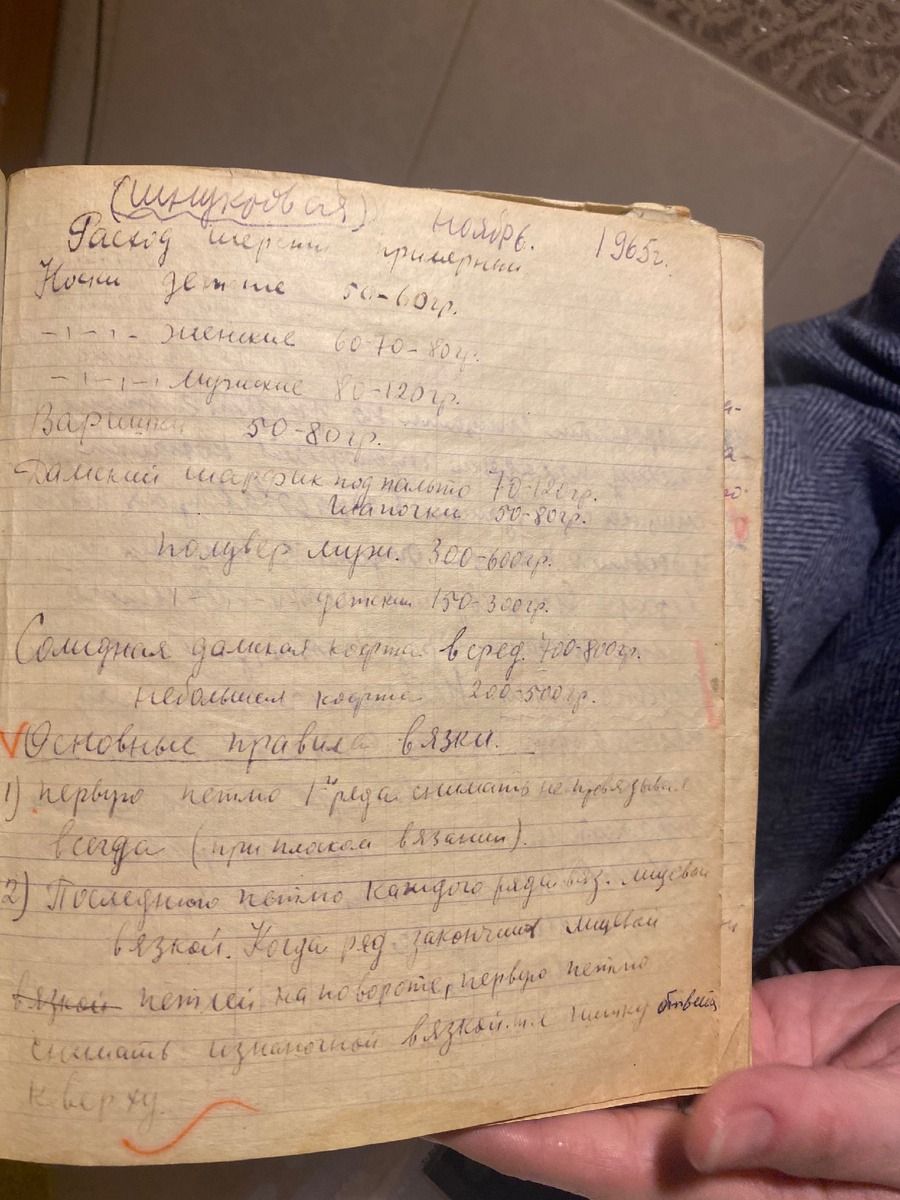 (Шнуковая) ноябрь. 1965г.
Расход шерсти примерный
Носки детские 50-60гр.
-ı-ı- женские 60-70-80гр.
-ı-ı-ı мужские 80-120гр.
Варишки 50-80гр.
Дамский шарфик под пальто 70-120гр.
шапочки 50-80гр.
полувер муж. 300-600гр.
детский 150-300гр.
Солидная дамская кофта в сред. 700-800гр.
небольшая кофта 200-500гр.
V Основные правила вязки.
1) первую петлю 1го ряда снимать не провязывая
всегда (при плоском вязании).
2) Последнюю петлю каждого ряда вяз. лицевой
вязкой. Когда ряд закончит лицевой
вязкой петлей на повороте, первую петлю
снимать изнаночной вязкой. т.е нитку
к верху.